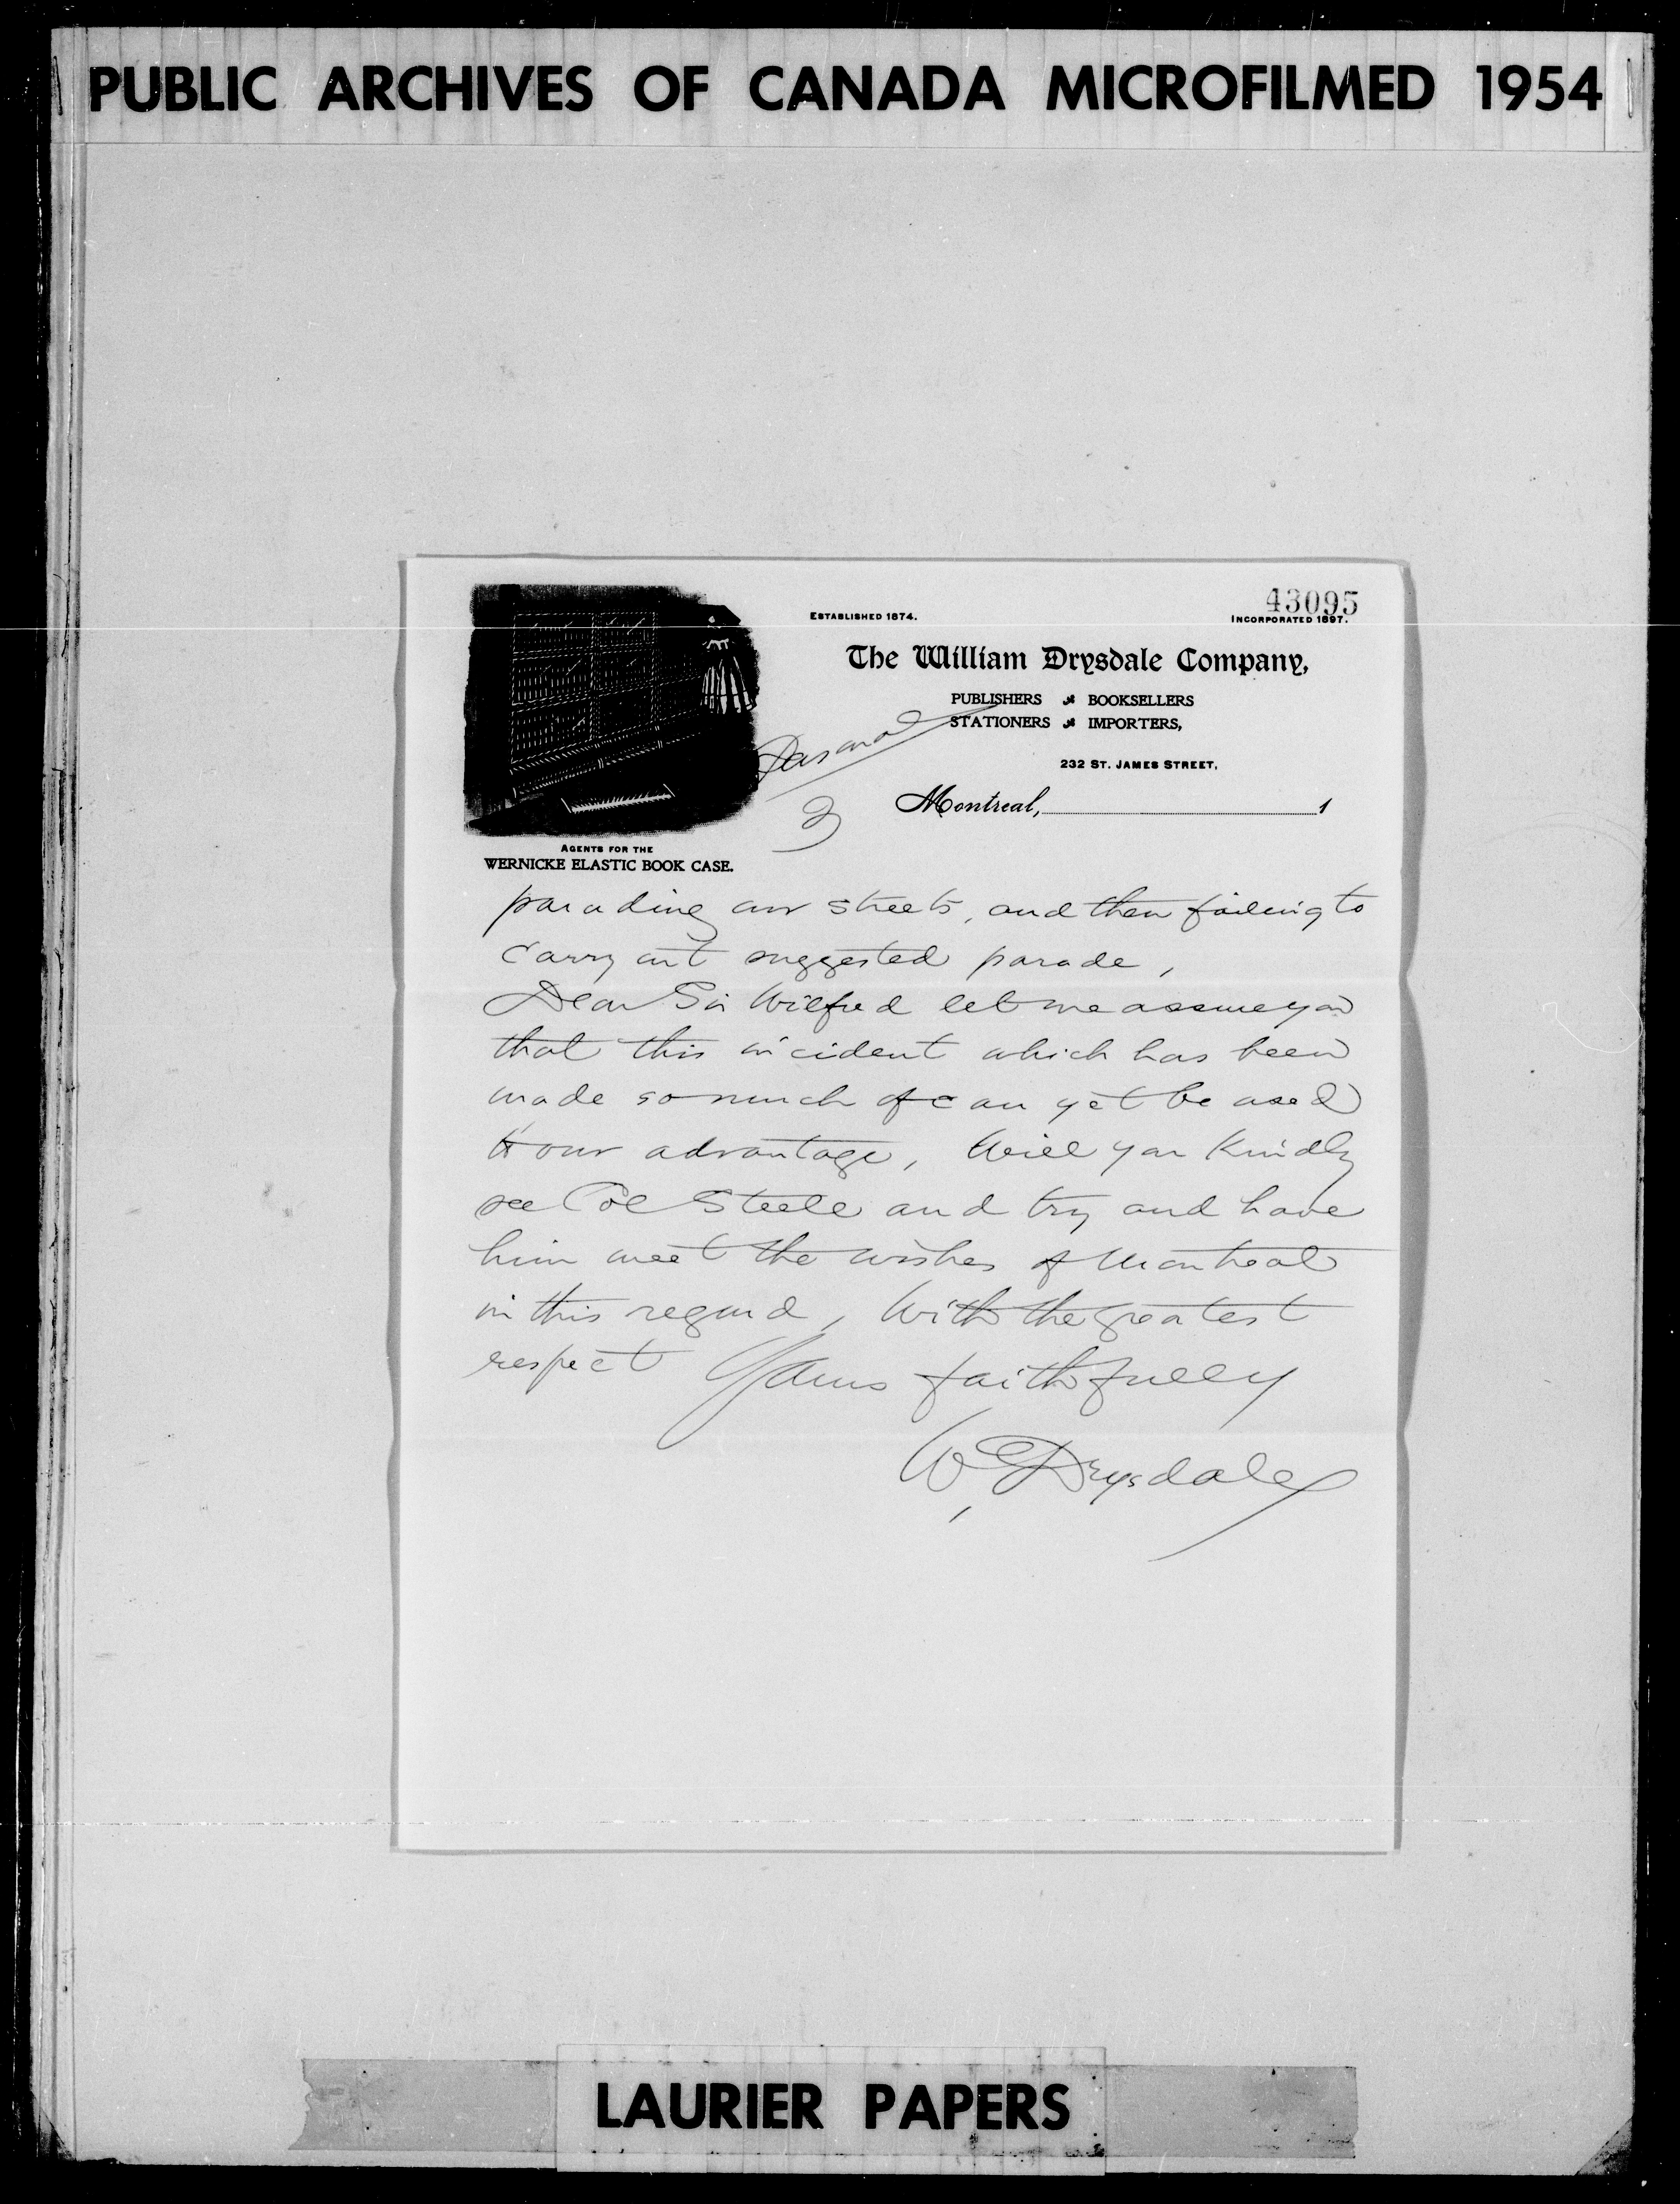 PUBLIC ARCHIVES OF CANADA MICROFILMED 1954
43095
ESTABLISHED 1874.
INCORPORATED 1897.
The William Drysdale Company,
PUBLISHERS BOOKSELLERS
STATIONERS IMPORTERS,
232 ST. JAMES STREET,
Montreal, 1
AGENTS FOR THE
WERNICKE ELASTIC BOOK CASE.
parading our streets, and then failing to
carry out suggested parade,
Dear Sir Wilfred let me assure you
that this incident which has been
made so much of can yet be used
to our advantage, Will you Kindly
see Col Steele and try and have
him meet the wishes of Montreal
in this regard, With the greatest
respect Yours faithfully
W. Drysdale
LAURIER PAPERS